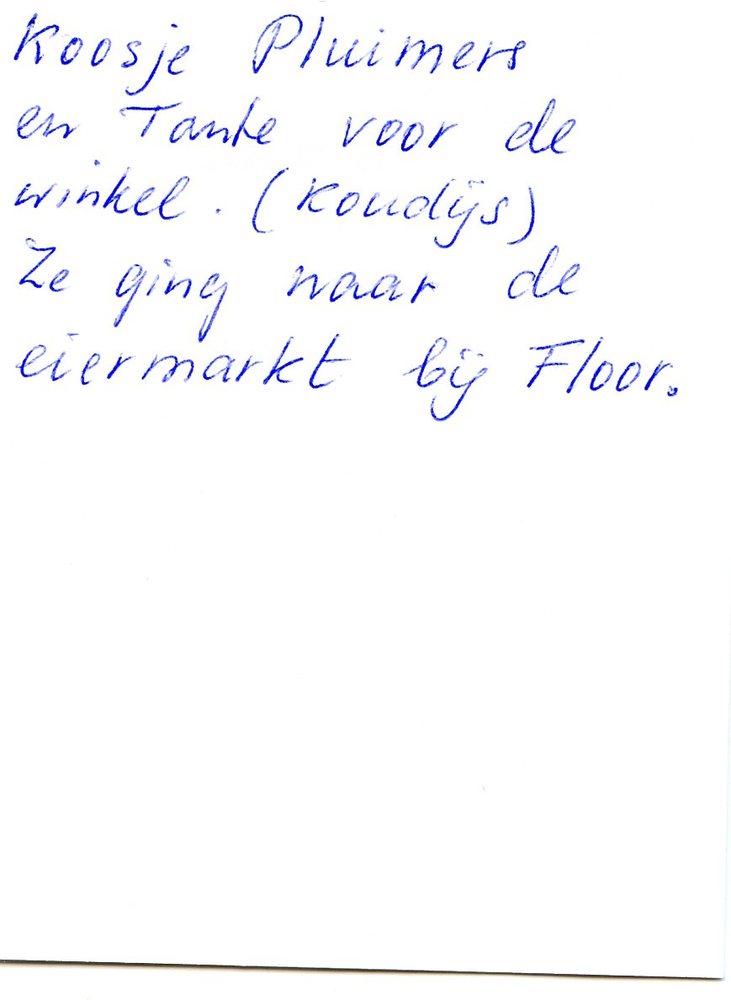 Koosje Pluimers
en Tante voor de
winkel. (Koudijs)
Ze ging naar de
eiermarkt bij Floor.